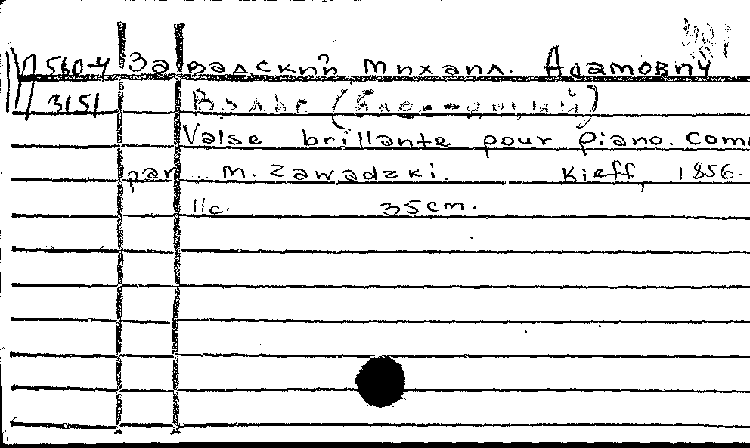 П 560-4 Завадский Михаил. Адамович
3151 Вальс (блестящий)
Valse brillante pour piano. Com
par M. Zawadzki. Kieff, 1856.
11c. 35cm.